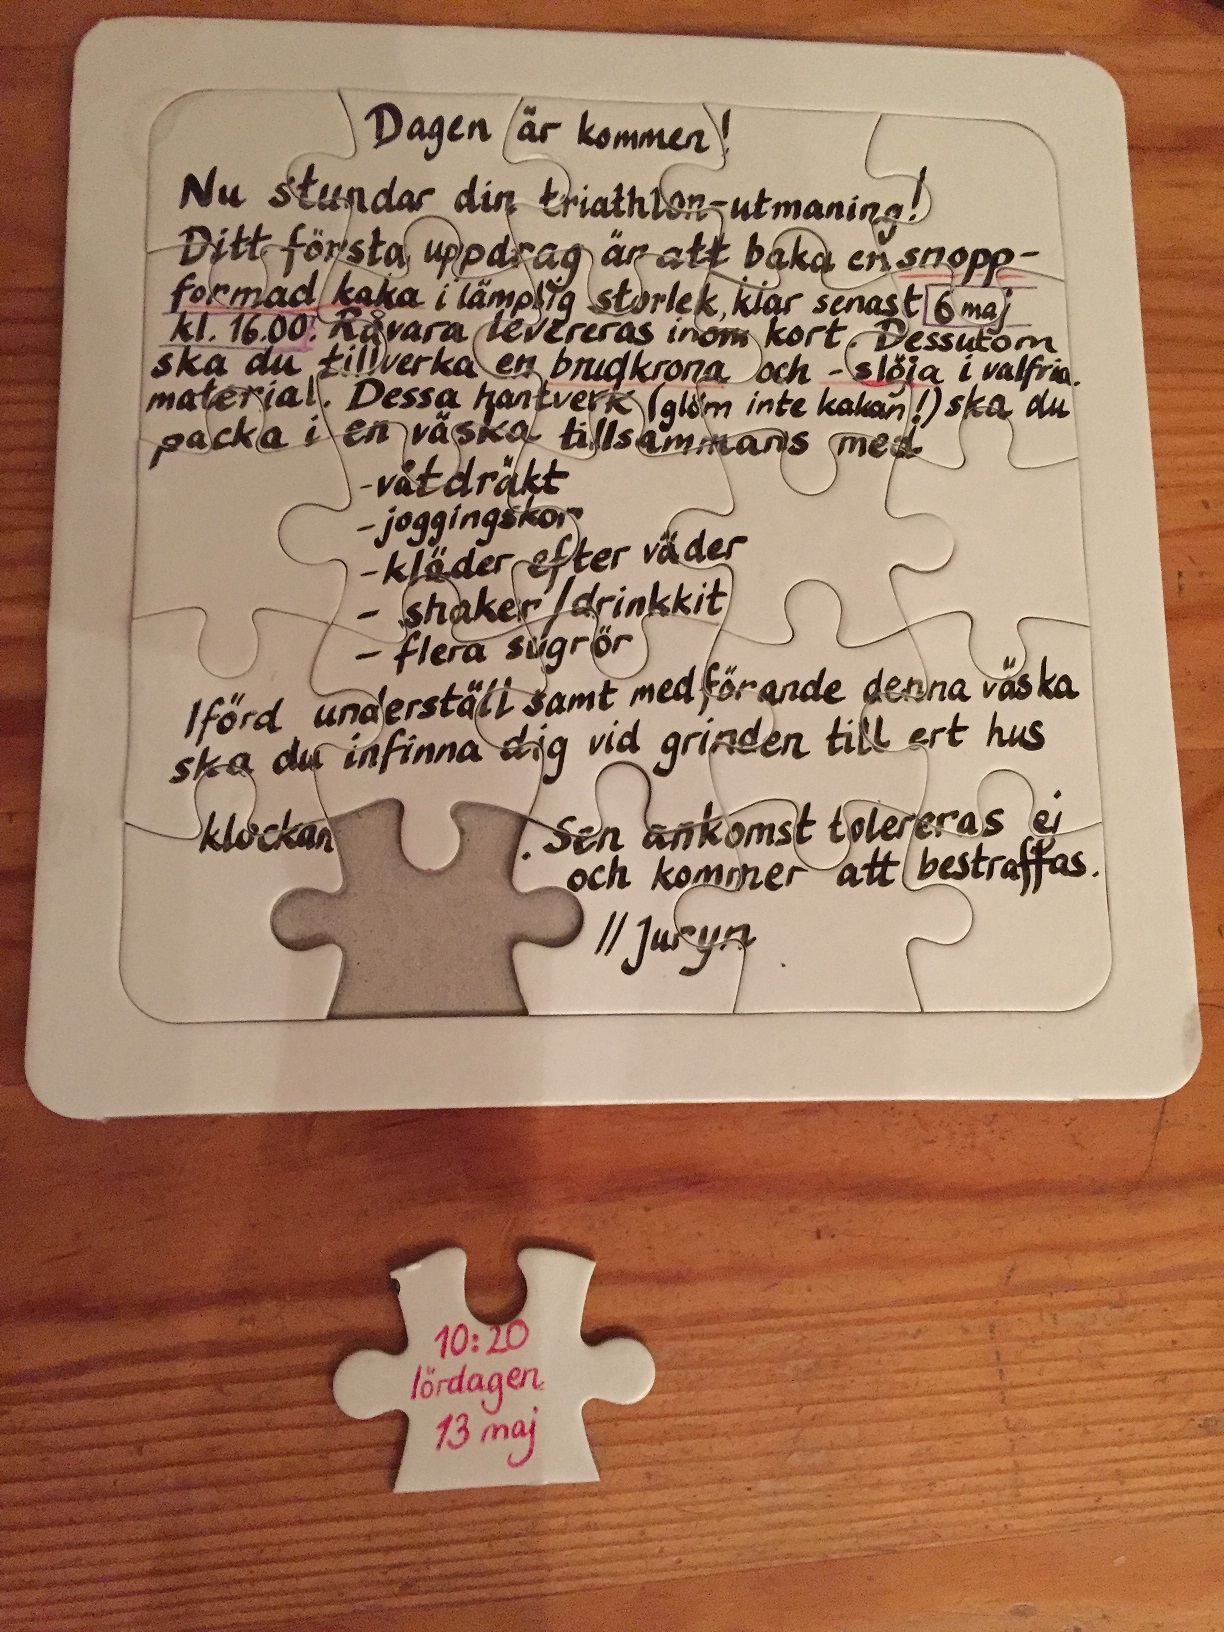 Dagen är kommen!
Nu stundar din triathlon-utmaning!
Ditt första uppdrag är att baka en snopp-
formad kaka i lämplig storlek, klar senast 6 maj
kl. 16.00. Råvara levereras inom kort. Dessutom
ska du tillverka en brudkrona och -slöja i valfria
material. Dessa hantverk (glöm inte kakan!) ska du
packa i en väska tillsammans med
-våtdräkt
-joggingskor
-kläder efter väder
- shaker/drinkkit
- flera sugrör
Iförd underställ samt medförande denna väska
ska du infinna dig vid grinden till ert hus
klockan . Sen ankomst tolereras ej
och kommer att bestraffas.
// Juryn
10:20
lördagen
13 maj